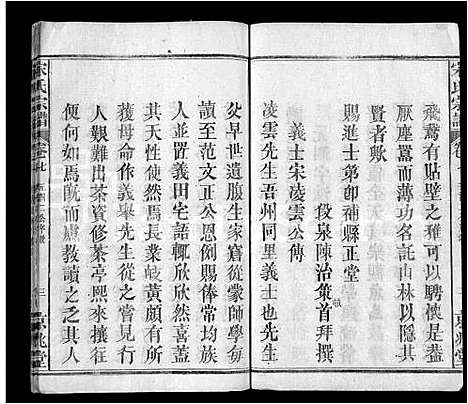 宋氏宗譜
卷七
飛鴦有貼壁之雅可以騁懷是葢
厭塵囂而薄功名託山林以隱其
賢者歟
賜進士第卽補縣正堂
毅泉陳治策首拜撰
義士宋凌雲公傳
凌雲先生吾州同里義士也先生
父早世遺腹生家窘從蒙師學每
讀至范文正公恩例賜俸常均族
人并置義田宅語輒欣欣然喜蓋
天性使然焉長業岐黃頗有所
獲母命作義舉先生之嘗見行
人艱難出茶資修茶亭熙來攘往
便何如焉旣而慮教讀之之其
宋氏宗譜
卷七
三
京兆堂